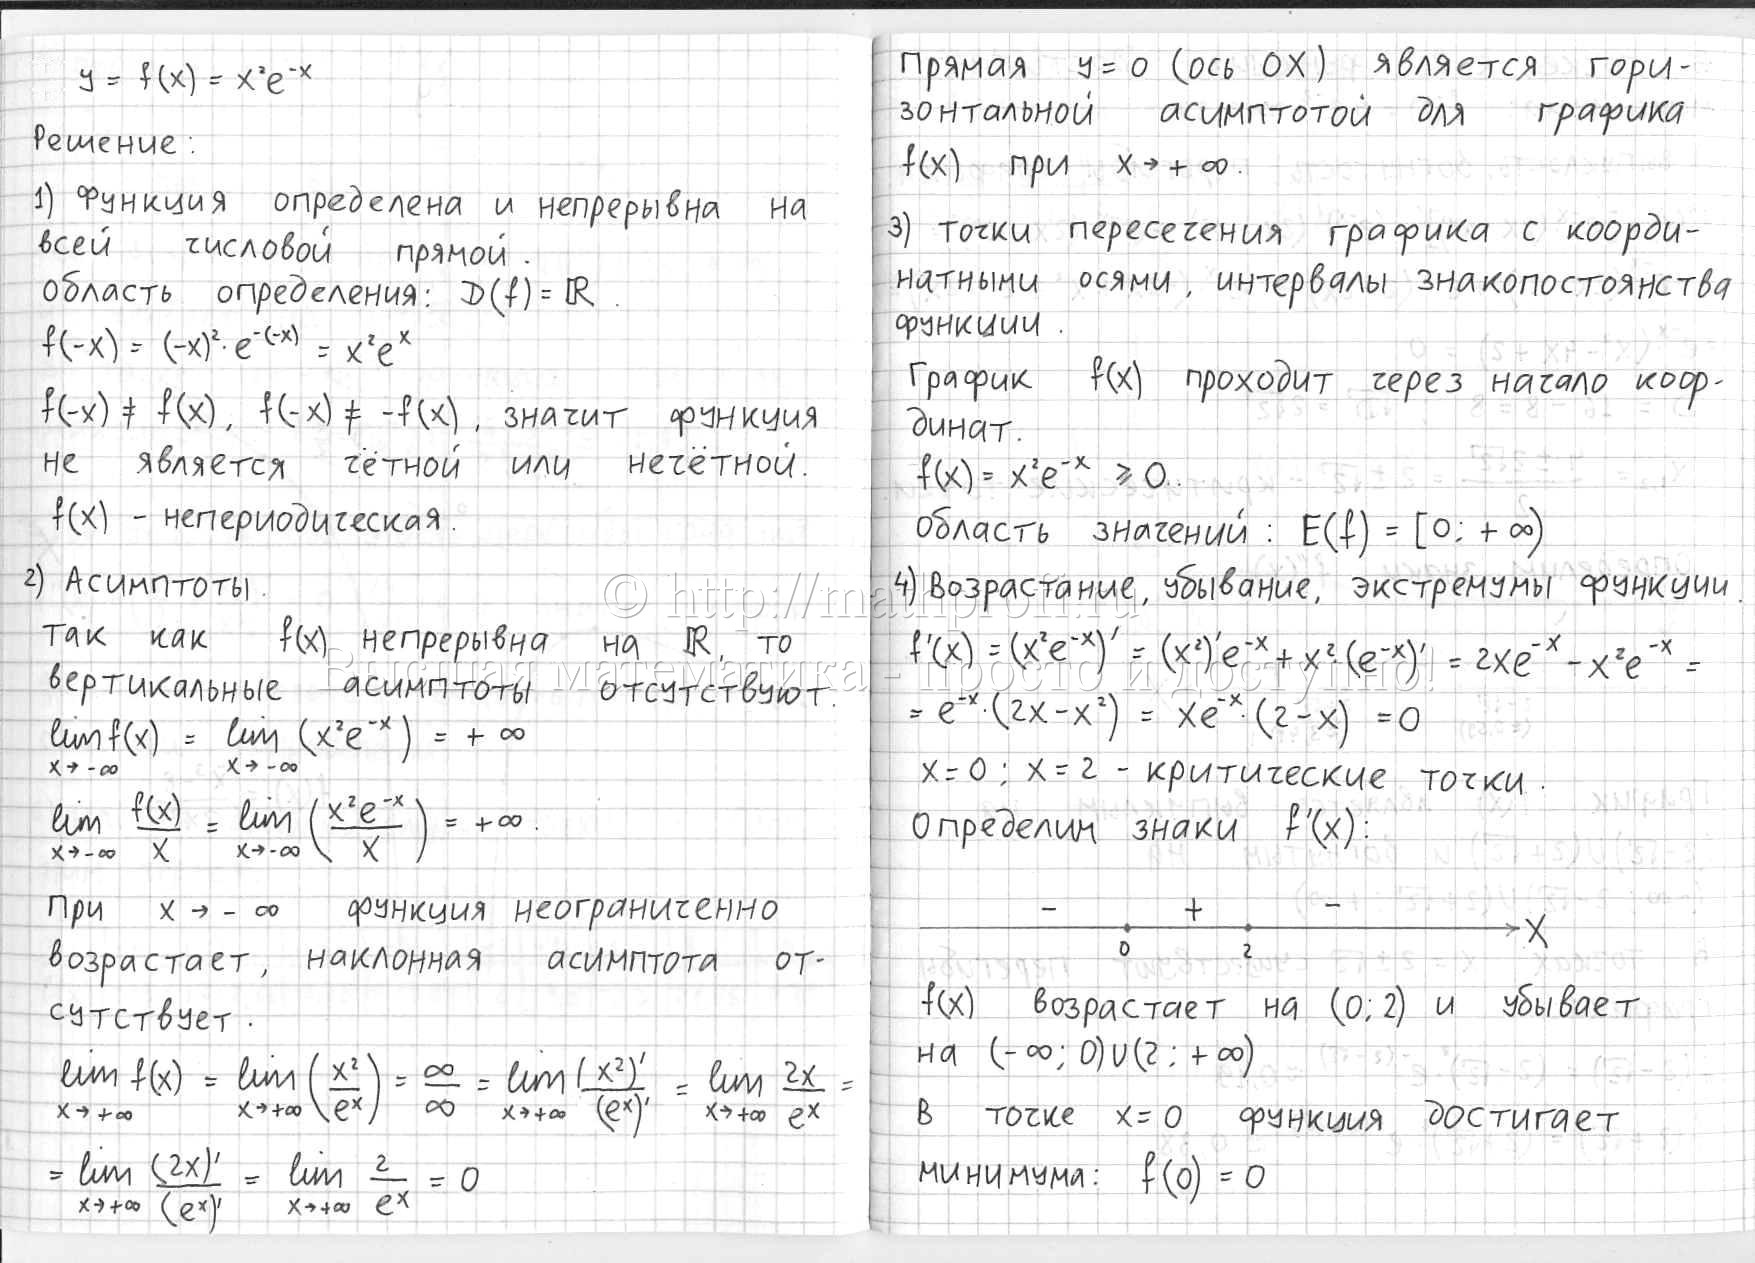 y = f(x) = x²e⁻ˣ
Решение:
1) Функция определена и непрерывна на
всей числовой прямой.
Область определения: D(f) = ℝ.
f(-x) = (-x)²·e^(-(-x)) = x²eˣ
f(-x) ≠ f(x), f(-x) ≠ -f(x), значит функция
не является чётной или нечётной.
f(x) - непериодическая.
2) Асимптоты.
Так как f(x) непрерывна на ℝ, то
вертикальные асимптоты отсутствуют.
lim_{x→-∞} f(x) = lim_{x→-∞} (x²e⁻ˣ) = +∞
lim_{x→-∞} f(x)/x = lim_{x→-∞} (x²e⁻ˣ/x) = +∞.
При x→-∞ функция неограниченно
возрастает, наклонная асимптота от-
сутствует.
lim_{x→+∞} f(x) = lim_{x→+∞} (x²/eˣ) = ∞/∞ = lim_{x→+∞} (x²)'/(eˣ)' = lim_{x→+∞} 2x/eˣ =
= lim_{x→+∞} (2x)'/(eˣ)' = lim_{x→+∞} 2/eˣ = 0
Прямая y=0 (ось OX) является гори-
зонтальной асимптотой для графика
f(x) при x→+∞.
3) Точки пересечения графика с коорди-
натными осями, интервалы знакопостоянства
функции.
График f(x) проходит через начало коор-
динат.
f(x) = x²e⁻ˣ ⩾ 0.
Область значений: E(f) = [0; +∞)
4) Возрастание, убывание, экстремумы функции.
f'(x) = (x²e⁻ˣ)' = (x²)'e⁻ˣ + x²·(e⁻ˣ)' = 2xe⁻ˣ - x²e⁻ˣ =
= e⁻ˣ·(2x-x²) = xe⁻ˣ·(2-x) = 0
x=0; x=2 - критические точки.
Определим знаки f'(x):
- + -
0 2 X
f(x) возрастает на (0; 2) и убывает
на (-∞; 0)∪(2; +∞)
В точке x=0 функция достигает
минимума: f(0) = 0
© http://mathprofi.ru
Высшая математика - просто и доступно!